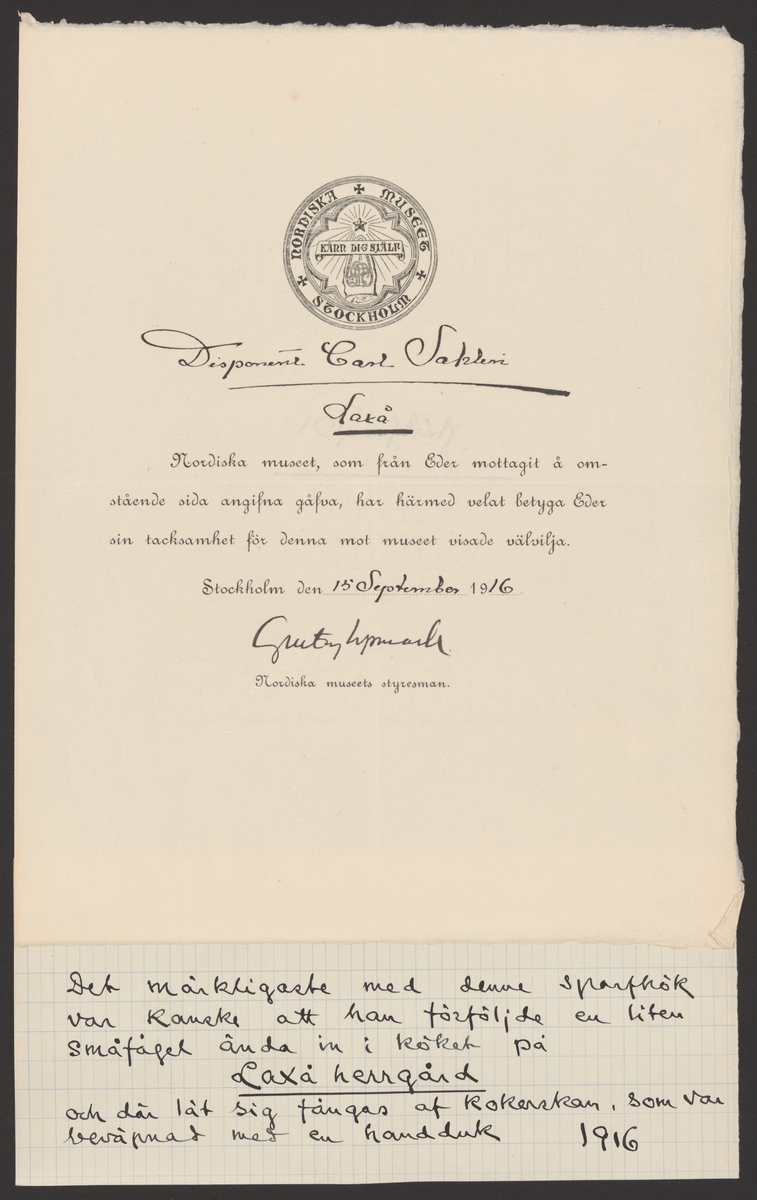 NORDISKA MUSEET
KÄNN DIG SJÄLF
STOCKHOLM
Disponent Carl Sahlin
Laxå
Nordiska museet, som från Eder mottagit å om-
stående sida angifna gåfva, har härmed velat betyga Eder
sin tacksamhet för denna mot museet visade välvilja.
Stockholm den 15 September 1916.
Gustaf Upmark
Nordiska museets styresman.
Det märkligaste med denne sparfhök
var kanske att han förföljde en liten
småfågel ända in i köket på
Laxå herrgård
och där lät sig fångas af kokerskan, som var
beväpnad med en handduk 1916